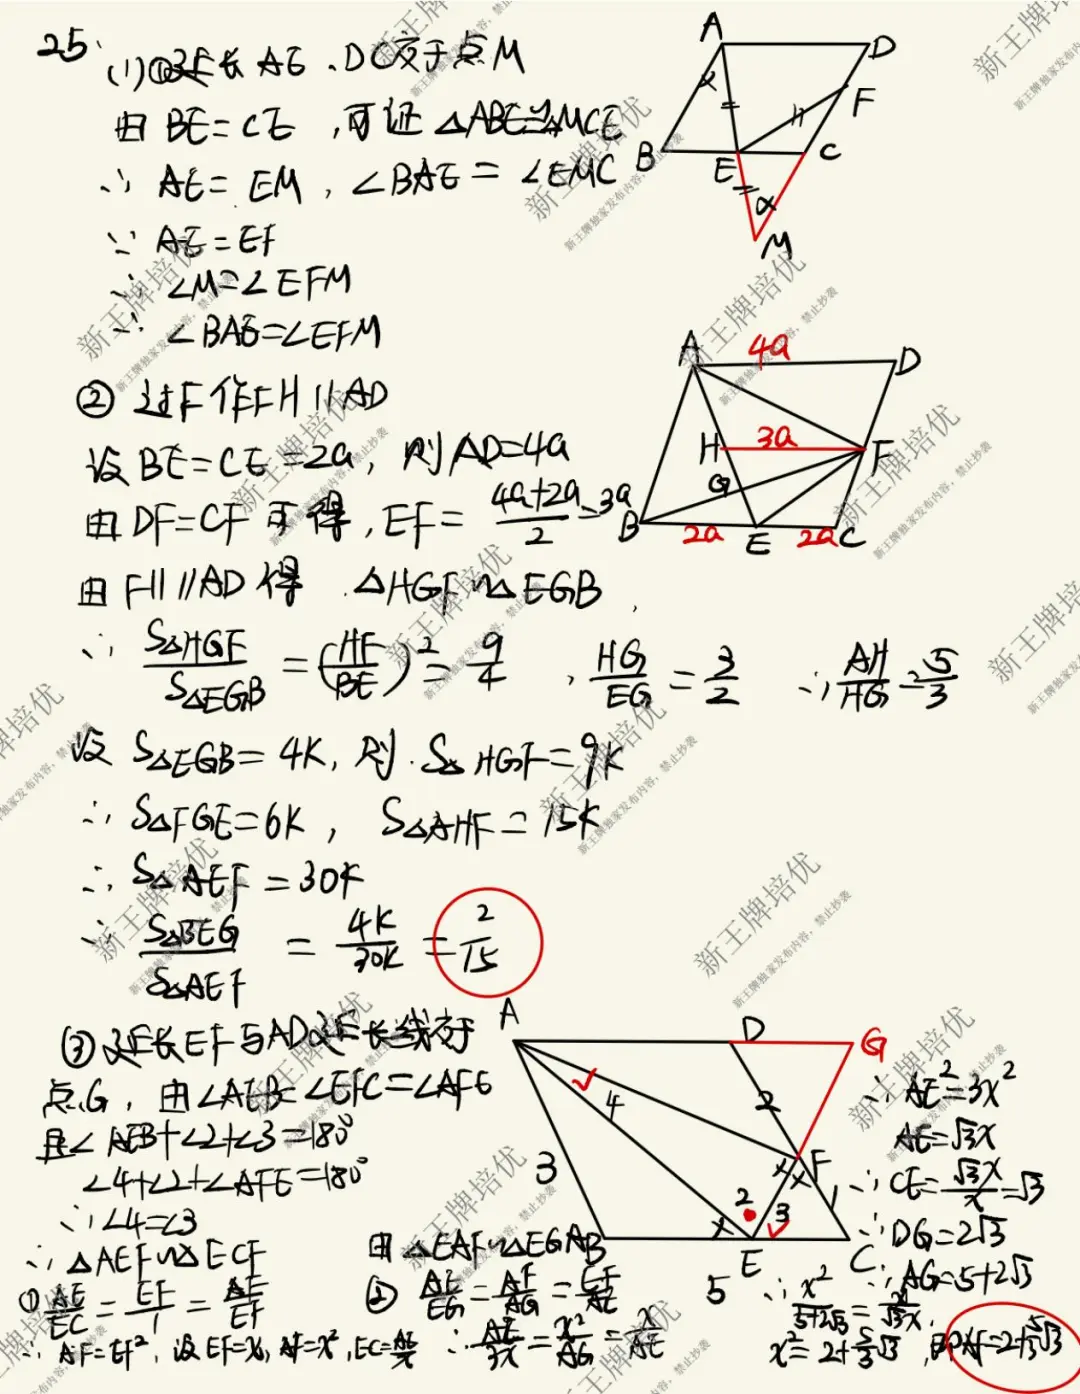 25
(1)①延长AE、DC交于点M
由BE=CE,可证△ABE≌△MCE
∴ AE=EM,∠BAE=∠EMC
∵ AE=EF
∴ ∠M=∠EFM
∴ ∠BAE=∠EFM
A
D
F
B
E
C
α
α
M
② 过F作FH∥AD
设BE=CE=2a,则AD=4a
由DF=CF可得,EF=(4a+2a)/2=3a
由FH∥AD得 △HGF∽△EGB
A
4a
D
H
3a
F
G
B
2a
E
2a
C
∴ S△HGF/S△EGB=(HF/BE)²=9/4,HG/EG=3/2 ∴AH/HG=5/3
设S△EGB=4K,则S△HGF=9K
∴ S△FGE=6K,S△AHF=15K
∴ S△AEF=30K
∴ S△BEG/S△AEF=4K/30K=2/15
③ 延长EF与AD延长线交于
点G,由∠AEB=∠EFC=∠AFE
且∠AEB+∠2+∠3=180°
∠4+∠2+∠AFE=180°
∴∠4=∠3
∴△AEF∽△ECF
① AE/EC=EF/1=AF/EF
∴AF=EF²,设EF=x,AF=x²,EC=AE/x
由△EAF∽△EGA
② AE/EG=AF/AG=EF/AE
∴AE/3x=x²/AG=x/AE
A
D
G
4
2
3
F
1
2
3
x
B
E
C
5
∴AE²=3x²
AE=√3x
∴CE=√3x/x=√3
∴DG=2√3
∴AG=5+2√3
∴x²/(5+2√3)=x/√3x,
x²=2+5/3√3,即AF=2+5/3√3
新王牌培优
新王牌独家发布内容,禁止抄袭